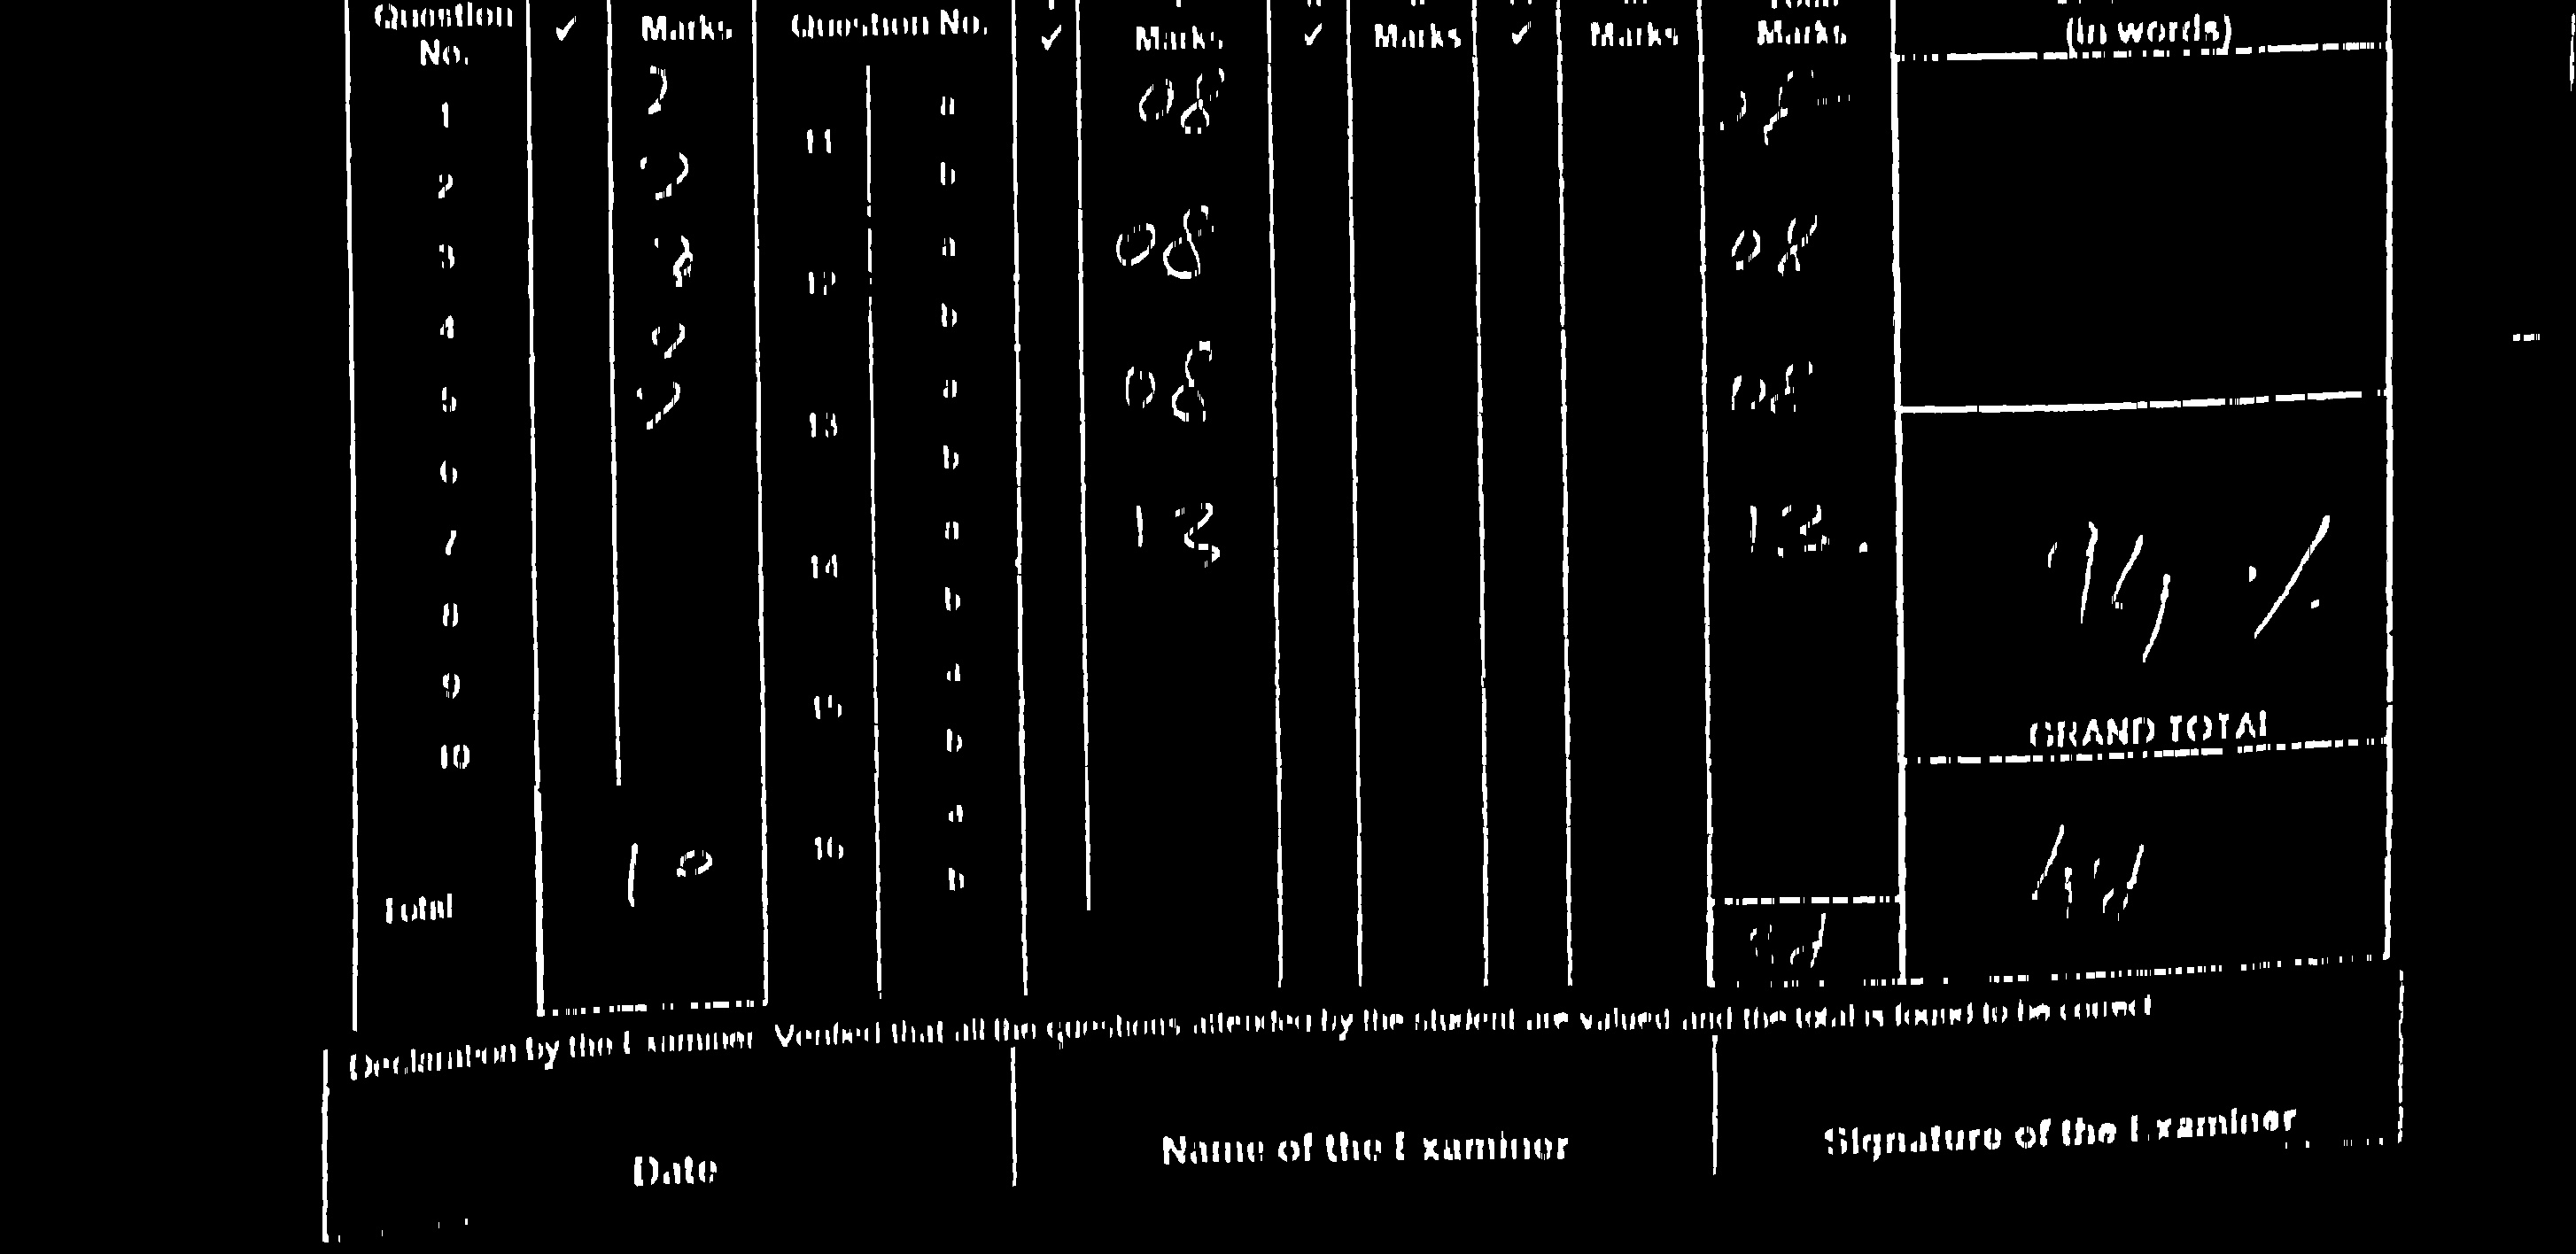 Question No. ✓ Marks Question No. ✓ Marks ✓ Marks ✓ Marks Total Marks (in words)
1 2 11 a 08
2 2 b
3 2 12 a 08 08
4 2 b
5 2 13 a 08 08
6 b
7 14 a 13 13.
8 b
9 15 a
10 b
16 a
b
Total 10
GRAND TOTAL
Declaration by the Examiner Verified that all the questions attended by the student are valued and the total is found to be correct
Date Name of the Examiner Signature of the Examiner